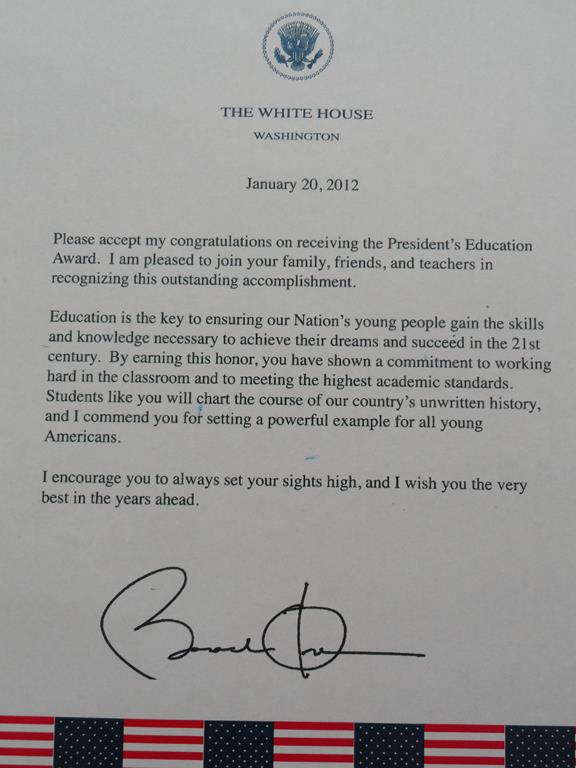 THE WHITE HOUSE
WASHINGTON
January 20, 2012
Please accept my congratulations on receiving the President's Education
Award. I am pleased to join your family, friends, and teachers in
recognizing this outstanding accomplishment.
Education is the key to ensuring our Nation's young people gain the skills
and knowledge necessary to achieve their dreams and succeed in the 21st
century. By earning this honor, you have shown a commitment to working
hard in the classroom and to meeting the highest academic standards.
Students like you will chart the course of our country's unwritten history,
and I commend you for setting a powerful example for all young
Americans.
I encourage you to always set your sights high, and I wish you the very
best in the years ahead.